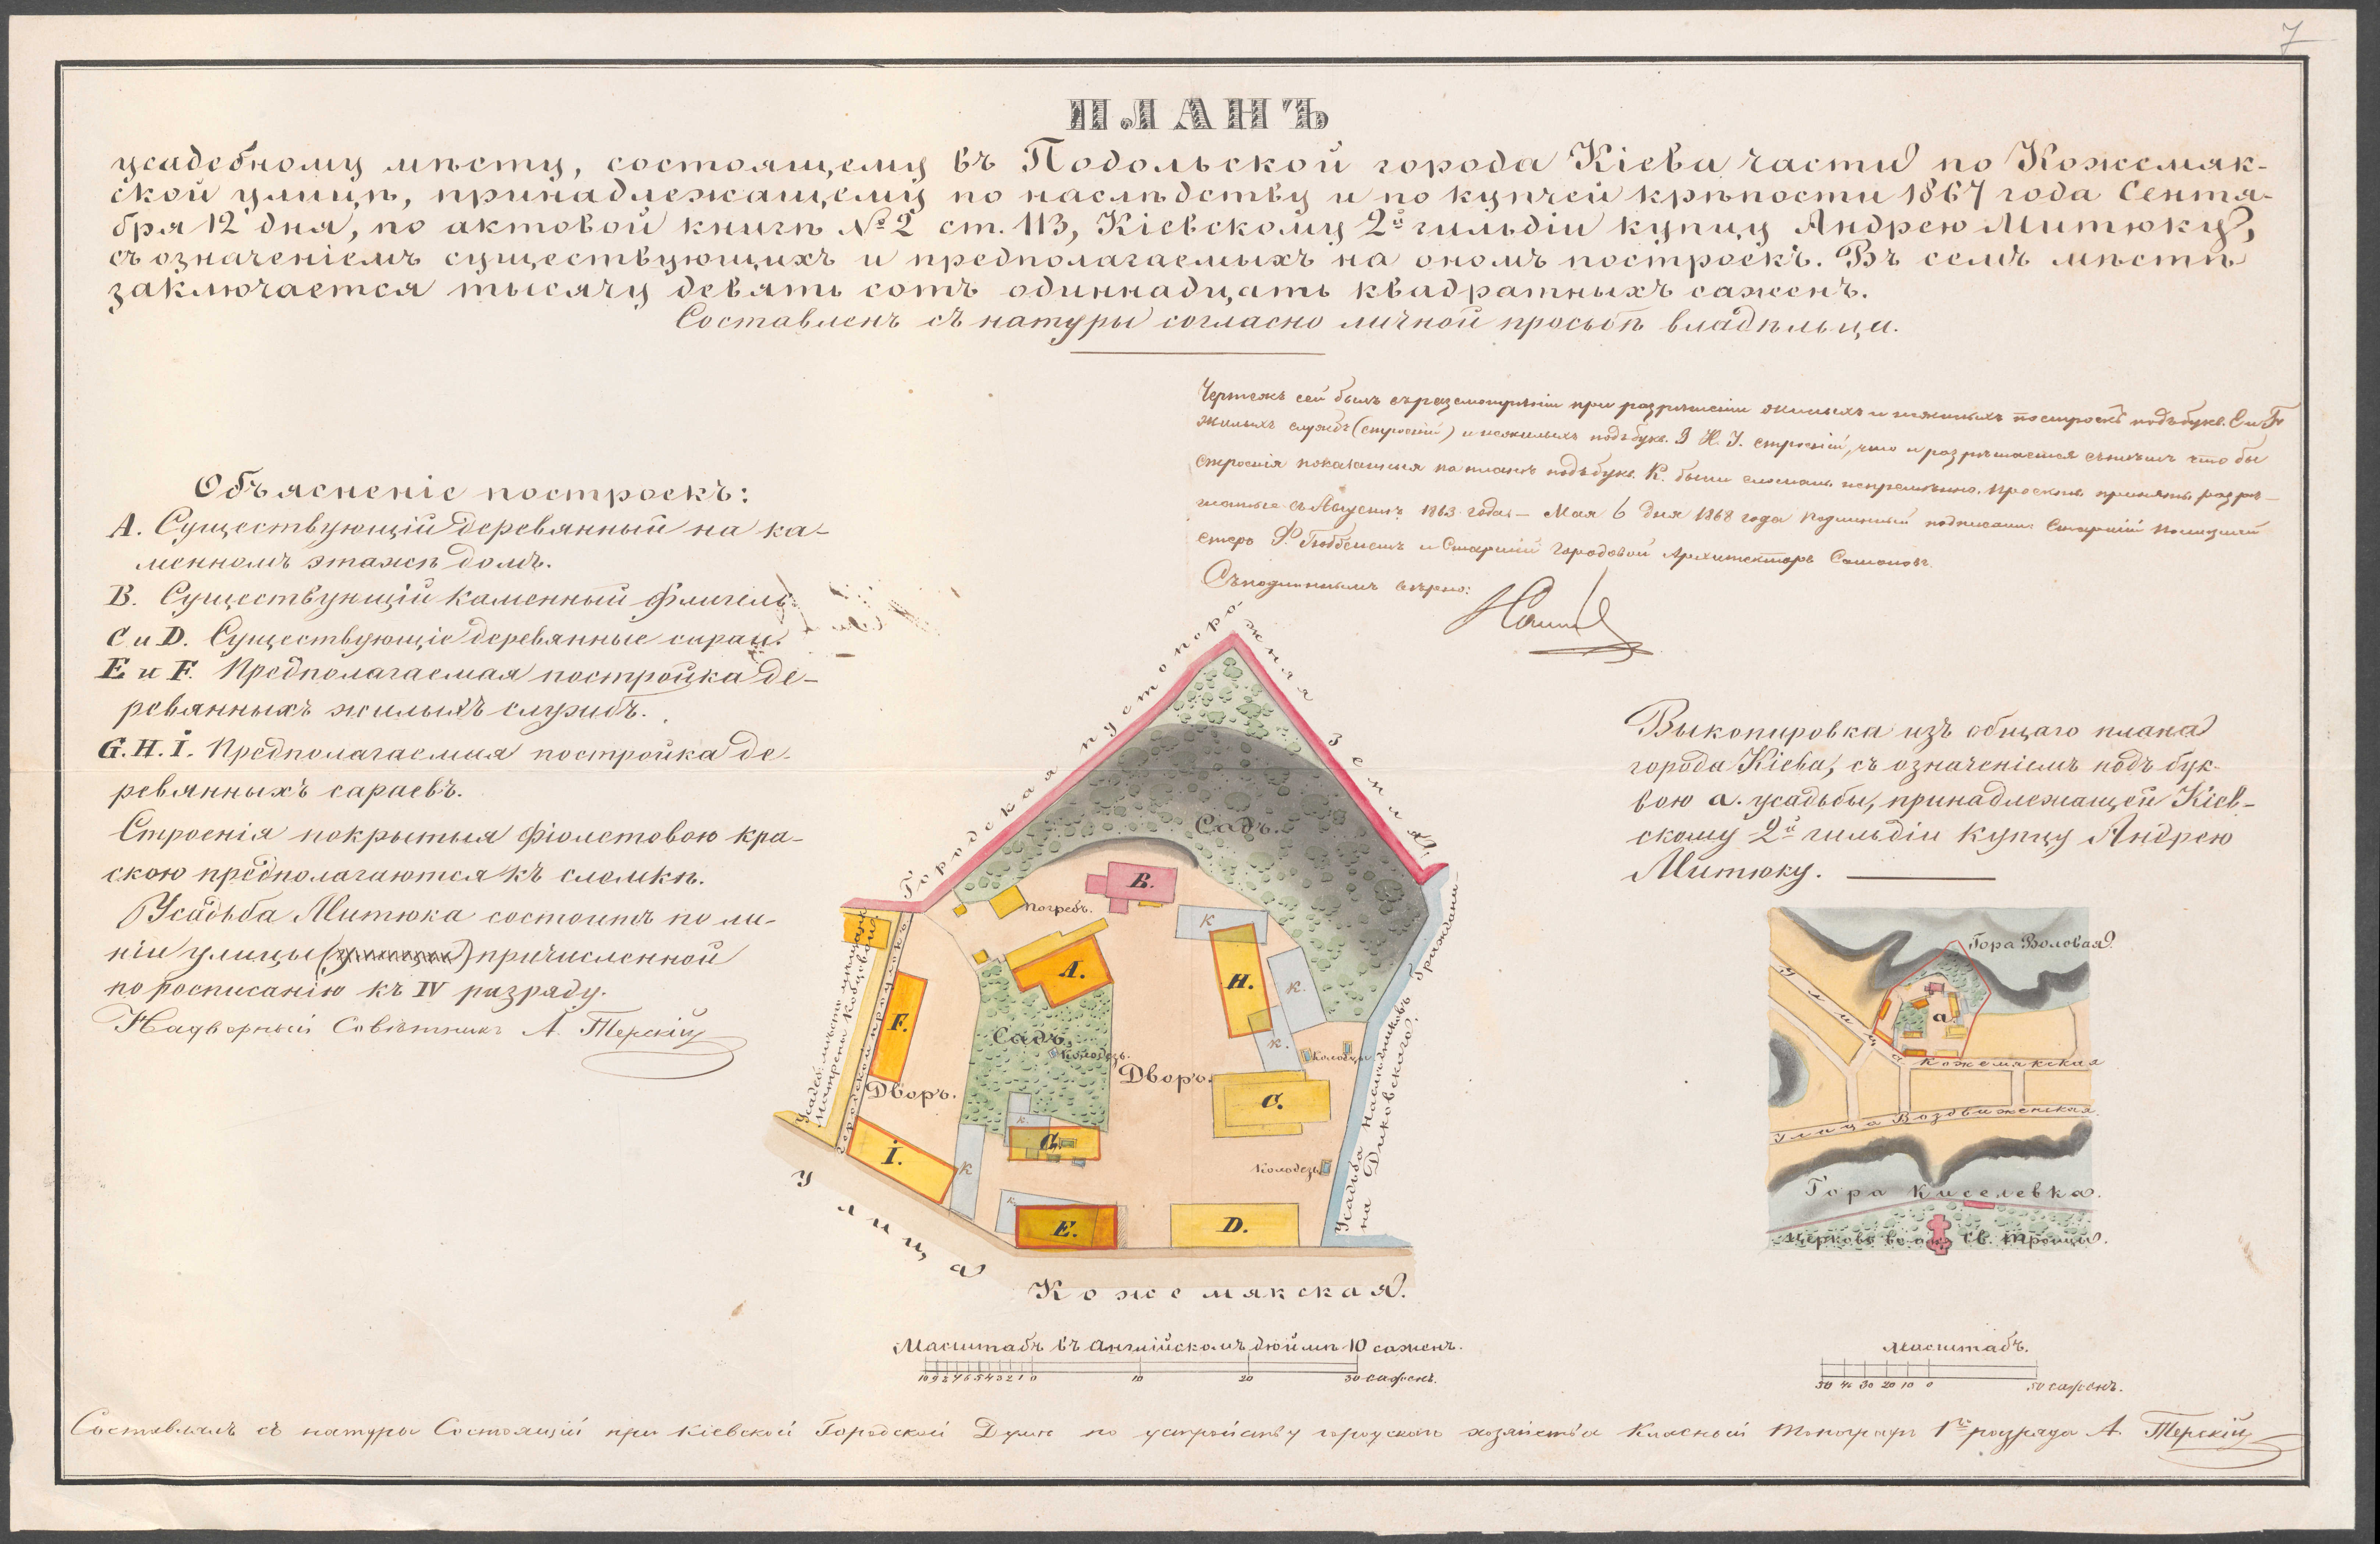 7
ПЛАНЪ
усадебному мѣсту, состоящему въ Подольской города Кіева части по Кожемяк-
ской улицѣ, принадлежащему по наслѣдству и по купчей крѣпости 1867 года Сентя-
бря 12 дня, по актовой книгѣ № 2 ст. 113, Кіевскому 2й гильдіи купцу Андрею Митюку,
съ означеніемъ существующихъ и предполагаемыхъ на ономъ построекъ. Въ семъ мѣстѣ
заключается тысячу девять сотъ одиннадцать квадратныхъ саженъ.
Составленъ съ натуры согласно личной просьбѣ владѣльца.
Чертежъ сей былъ въ разсмотрѣніи при разрѣшеніи жилыхъ и нежилыхъ построекъ подъ букв. Е и F
жилыхъ службъ (строеній) и нежилыхъ подъ букв. G H. I. строеній, что и разрѣшается съ тѣмъ что бы
строенія показанныя на планѣ подъ букв. К. были сломаны непремѣнно,
1863 года — Мая 6 дня 1868 года Подлинный подписали Старшій
и Старшій Городовой Архитекторъ
Съ подлиннымъ вѣрно:
Объясненіе построекъ:
А. Существующій деревянный на ка-
менномъ этажѣ домъ.
В. Существующій каменный флигель.
С и D. Существующіе деревянные сараи.
Е и F. Предполагаемая постройка де-
ревянныхъ жилыхъ службъ.
G. H. I. Предполагаемая постройка де-
ревянныхъ сараевъ.
Строенія покрытыя фіолетовою кра-
скою предполагаются къ сломкѣ.
Усадьба Митюка состоитъ по ли-
ніи улицы причисленной
по росписанію къ IV разряду.
Надворный Совѣтникъ А. Терскій
Выкопировка изъ общаго плана
города Кіева, съ означеніемъ подъ бук-
вою а. усадьбы, принадлежащей Кіев-
скому 2й гильдіи купцу Андрею
Митюку.
Городская пустопорожняя земля.
Садъ.
В.
Погребъ.
К
А.
Н.
К.
F.
Садъ.
Колодезь.
К.
Колодцы
Дворъ.
Дворъ.
С.
К.
G.
I.
К
Колодезь
К.
Е.
D.
Усадеб. мѣсто мѣщанки
Матрены Кобцовой.
Городской проулокъ
Усадьба Наслѣдниковъ граждани-
на Диковскаго.
Улица
Кожемякская.
Гора Воловая.
а
Улица
Кожемякская
Улица Воздвиженская.
Гора Киселевка.
Церковь во имя Св. Троицы.
Масштабъ въ Англійскомъ дюймѣ 10 саженъ.
10 9 8 7 6 5 4 3 2 1 0 10 20 30 саженъ.
Масштабъ.
50 40 30 20 10 0 50 саженъ.
Составлялъ съ натуры Состоящій при Кіевской Городской Думѣ по устройству городскаго хозяйства Класный Топографъ 1го разряда А. Терскій